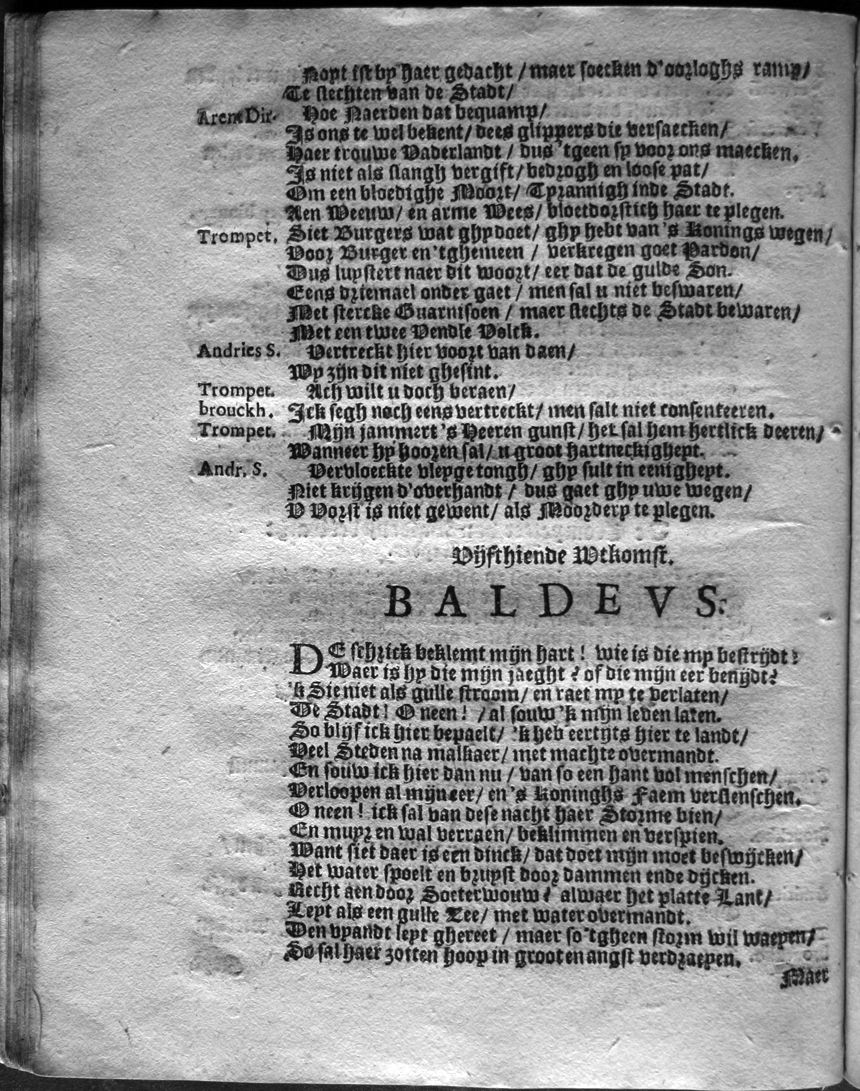 Noyt ist by haer gedacht / maer soecken d'oorloghs ramp/
Te slechten van de Stadt/
Arent Dir. Hoe Naerden dat bequamp/
Is ons te wel bekent/ dees glippers die versaecken/
Haer trouwe Vaderlandt / dus 'tgeen sy voor ons maecken,
Is niet als slangh vergift/ bedrogh en loose pat/
Om een bloedighe Moort/ Tyrannigh inde Stadt.
Aen Weeuw/ en arme Wees/ bloetdorstich haer te plegen.
Trompet. Siet Burgers wat ghy doet/ ghy hebt van 's Konings wegen/
Voor Burger en 'tghemeen / verkregen goet Pardon/
Dus luystert naer dit woort/ eer dat de gulde Son.
Eens driemael onder gaet / men sal u niet beswaren/
Met stercke Guarnisoen / maer slechts de Stadt bewaren/
Met een twee Vendle Volck.
Andries S. Vertreckt hier voort van daen/
Wy zijn dit niet ghesint.
Trompet. Ach wilt u doch beraen/
brouckh. Ick segh noch eens vertreckt/ men salt niet consenteeren.
Trompet. Mijn jammert 's Heeren gunst/ het sal hem hertlick deeren/
Wanneer hy hooren sal/ u groot hartneckigheyt.
Andr. S. Vervloeckte vleyge tongh/ ghy sult in eenigheyt.
Niet krijgen d'overhandt / dus gaet ghy uwe wegen/
V Vorst is niet gewent/ als Moordery te plegen.
Vijfthiende Wtkomst.
BALDEVS.
DE schrick beklemt mijn hart! wie is die my bestrijdt?
Waer is hy die mijn jaeght? of die mijn eer benijdt?
'k Sie niet als gulle stroom/ en raet my te verlaten/
De Stadt! O neen! / al souw 'k mijn leden laten.
So blijf ick hier bepaelt/ 'k heb eertijts hier te landt/
Veel Steden na malkaer/ met machte overmandt.
En souw ick hier dan nu / van so een hant vol menschen/
Verloopen al mijn eer/ en 's Koninghs Faem verslenschen.
O neen! ick sal van dese nacht haer Storme bien/
En muyr en wal verraen/ beklimmen en verspien.
Want siet daer is een dinck/ dat doet mijn moet beswijcken/
Het water spoelt en bruyst door dammen ende dijcken.
Recht aen door Soeterwouw? alwaer het platte Lant/
Leyt als een gulle Zee/ met water overmandt.
Den vyandt leyt ghereet / maer so 'tgheen storm wil waeyen/
So sal haer zotten hoop in groot en angst verdraeyen.
Maer